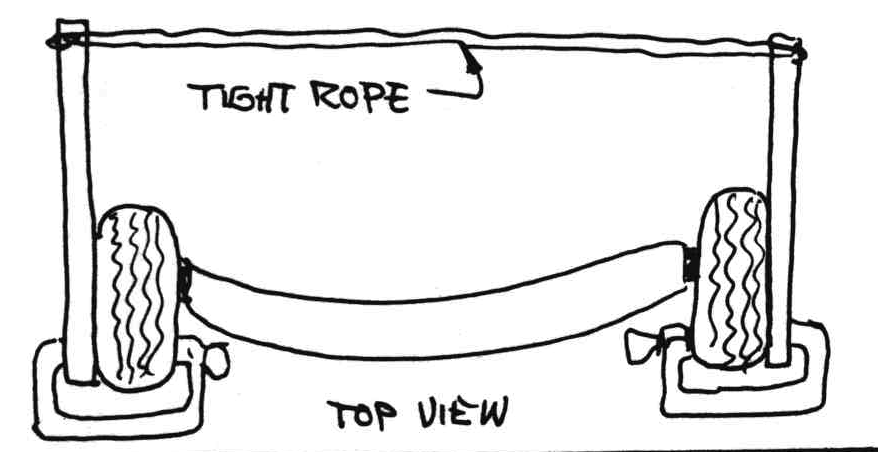 TIGHT ROPE
TOP VIEW